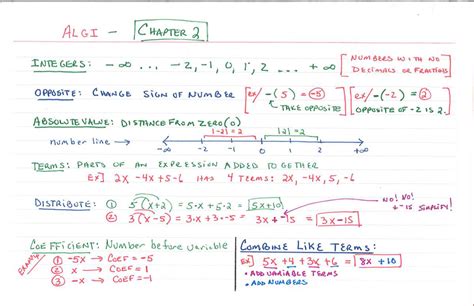 ALGI - CHAPTER 2
INTEGERS: -∞ ... -2, -1, 0, 1, 2 ... +∞ [NUMBERS WITH NO DECIMALS OR FRACTIONS]
OPPOSITE: CHANGE SIGN OF NUMBER [ex/ -(5) = -5 TAKE OPPOSITE] [ex/ -(-2) = 2 OPPOSITE OF -2 IS 2.]
ABSOLUTE VALUE: DISTANCE FROM ZERO (0) |-2| = 2 |2| = 2
number line -∞ -2 -1 0 +1 +2 +∞
TERMS: PARTS OF AN EXPRESSION ADDED TOGETHER
EX] 2X -4X +5 -6 HAS 4 TERMS: 2X, -4X, 5, -6
DISTRIBUTE: ① 5(X+2) = 5·X + 5·2 = 5X+10
② 3(X-5) = 3·X + 3·-5 = 3X + -15 = 3X-15
NO! NO! + -15 SIMPLIFY!
COEFFICIENT: Number before variable
EXAMPLE
① -5X → COEF = -5
② X → COEF = 1
③ -X → COEF = -1
COMBINE LIKE TERMS:
EX] 5X + 4 + 3X + 6 = 8X + 10
• ADD VARIABLE TERMS
• ADD NUMBERS